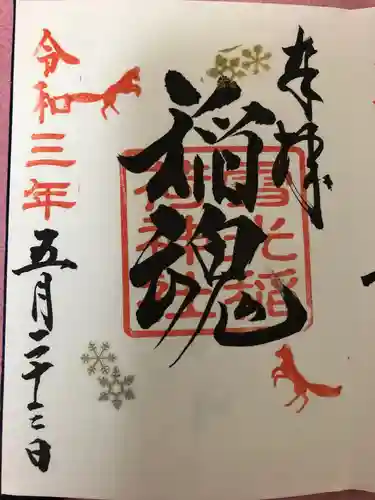 奉拝
稲魂
雪光稲荷神社
令和三年
五月二十三日